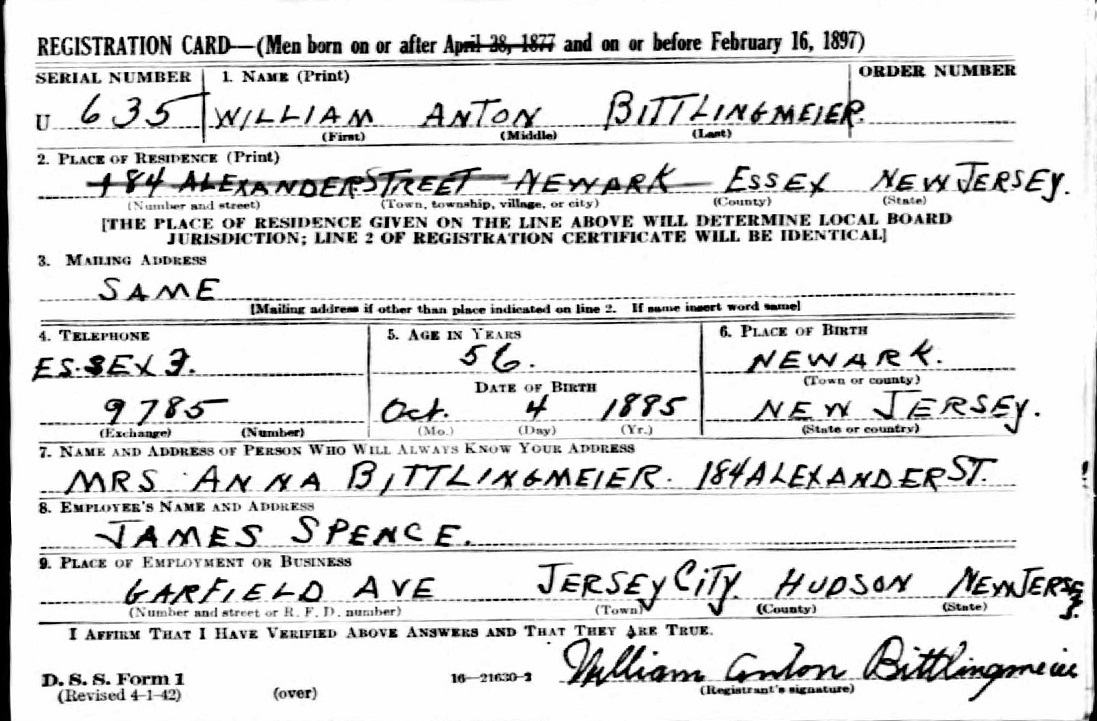 REGISTRATION CARD—(Men born on or after April 28, 1877 and on or before February 16, 1897)
SERIAL NUMBER 1. NAME (Print) ORDER NUMBER
U 635 WILLIAM ANTON BITTLINGMEIER.
(First) (Middle) (Last)
2. PLACE OF RESIDENCE (Print)
184 ALEXANDER STREET NEWARK ESSEX NEW JERSEY.
(Number and street) (Town, township, village, or city) (County) (State)
[THE PLACE OF RESIDENCE GIVEN ON THE LINE ABOVE WILL DETERMINE LOCAL BOARD
JURISDICTION; LINE 2 OF REGISTRATION CERTIFICATE WILL BE IDENTICAL]
3. MAILING ADDRESS
SAME
[Mailing address if other than place indicated on line 2. If same insert word same]
4. TELEPHONE 5. AGE IN YEARS 6. PLACE OF BIRTH
ESSEX 3. 56. NEWARK.
(Town or county)
DATE OF BIRTH
9785 Oct. 4 1885 NEW JERSEY.
(Exchange) (Number) (Mo.) (Day) (Yr.) (State or country)
7. NAME AND ADDRESS OF PERSON WHO WILL ALWAYS KNOW YOUR ADDRESS
MRS ANNA BITTLINGMEIER. 184 ALEXANDER ST.
8. EMPLOYER'S NAME AND ADDRESS
JAMES SPENCE.
9. PLACE OF EMPLOYMENT OR BUSINESS
GARFIELD AVE JERSEY CITY. HUDSON NEW JERSEY.
(Number and street or R. F. D. number) (Town) (County) (State)
I AFFIRM THAT I HAVE VERIFIED ABOVE ANSWERS AND THAT THEY ARE TRUE.
William Anton Bittlingmeier
D. S. S. Form 1 16—21630-2
(Revised 4-1-42) (over) (Registrant's signature)